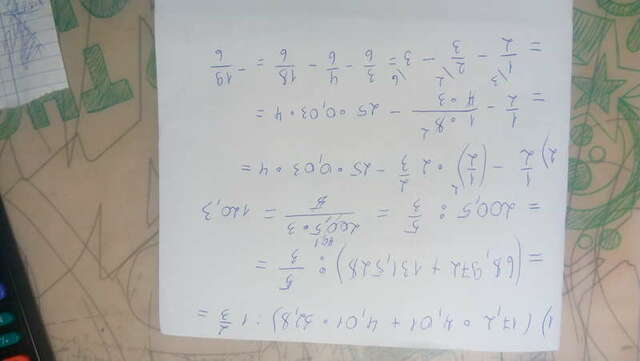 1) (17,2 • 4,01 + 4,01 • 32,8) : 1 2/3 =
= (68,972 + 131,528) : 5/3 =
= 200,5 : 5/3 = 200,5 • 3 / 5 = 120,3
40,1
2) 1/2 - (1/2)² • 2 2/3 - 25 • 0,03 • 4 =
= 1/2 - 1 • 8² / 4 • 3 - 25 • 0,03 • 4 =
= 1/2 \3 - 2/3 \2 - 3 \6 = 3/6 - 4/6 - 18/6 = - 19/6